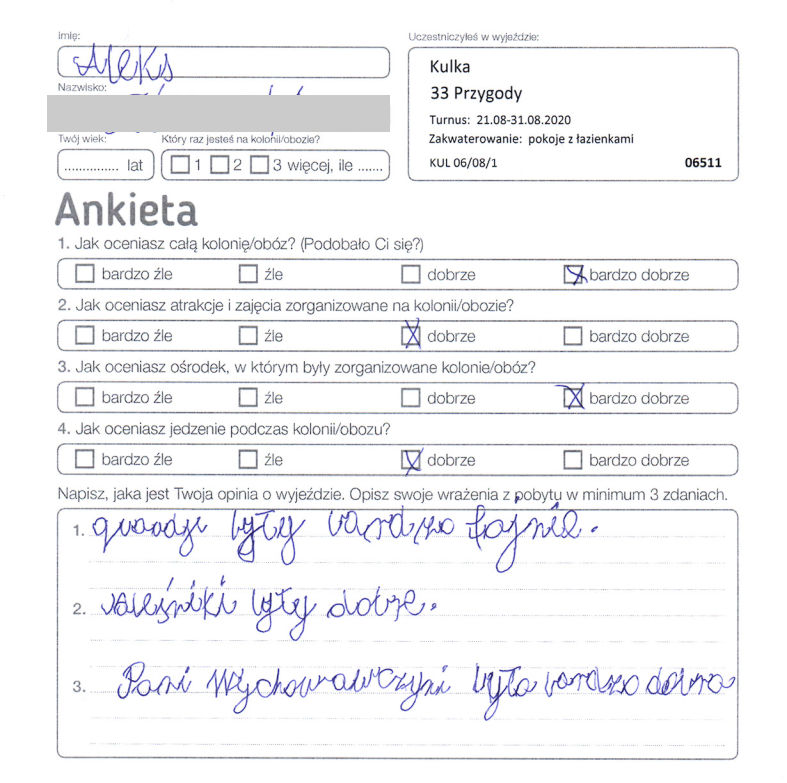 imię:
Aleks
Uczestniczyłeś w wyjeździe:
Kulka
33 Przygody
Turnus: 21.08-31.08.2020
Zakwaterowanie: pokoje z łazienkami
KUL 06/08/1 06511
Nazwisko:
Twój wiek:
Który raz jesteś na kolonii/obozie?
............... lat
1 2 3 więcej, ile .......
Ankieta
1. Jak oceniasz całą kolonię/obóz? (Podobało Ci się?)
bardzo źle źle dobrze bardzo dobrze
2. Jak oceniasz atrakcje i zajęcia zorganizowane na kolonii/obozie?
bardzo źle źle dobrze bardzo dobrze
3. Jak oceniasz ośrodek, w którym były zorganizowane kolonie/obóz?
bardzo źle źle dobrze bardzo dobrze
4. Jak oceniasz jedzenie podczas kolonii/obozu?
bardzo źle źle dobrze bardzo dobrze
Napisz, jaka jest Twoja opinia o wyjeździe. Opisz swoje wrażenia z pobytu w minimum 3 zdaniach.
1. były bardzo fajnie.
2. były dobrze.
3. Pani Wychowawczyni była bardzo dobra